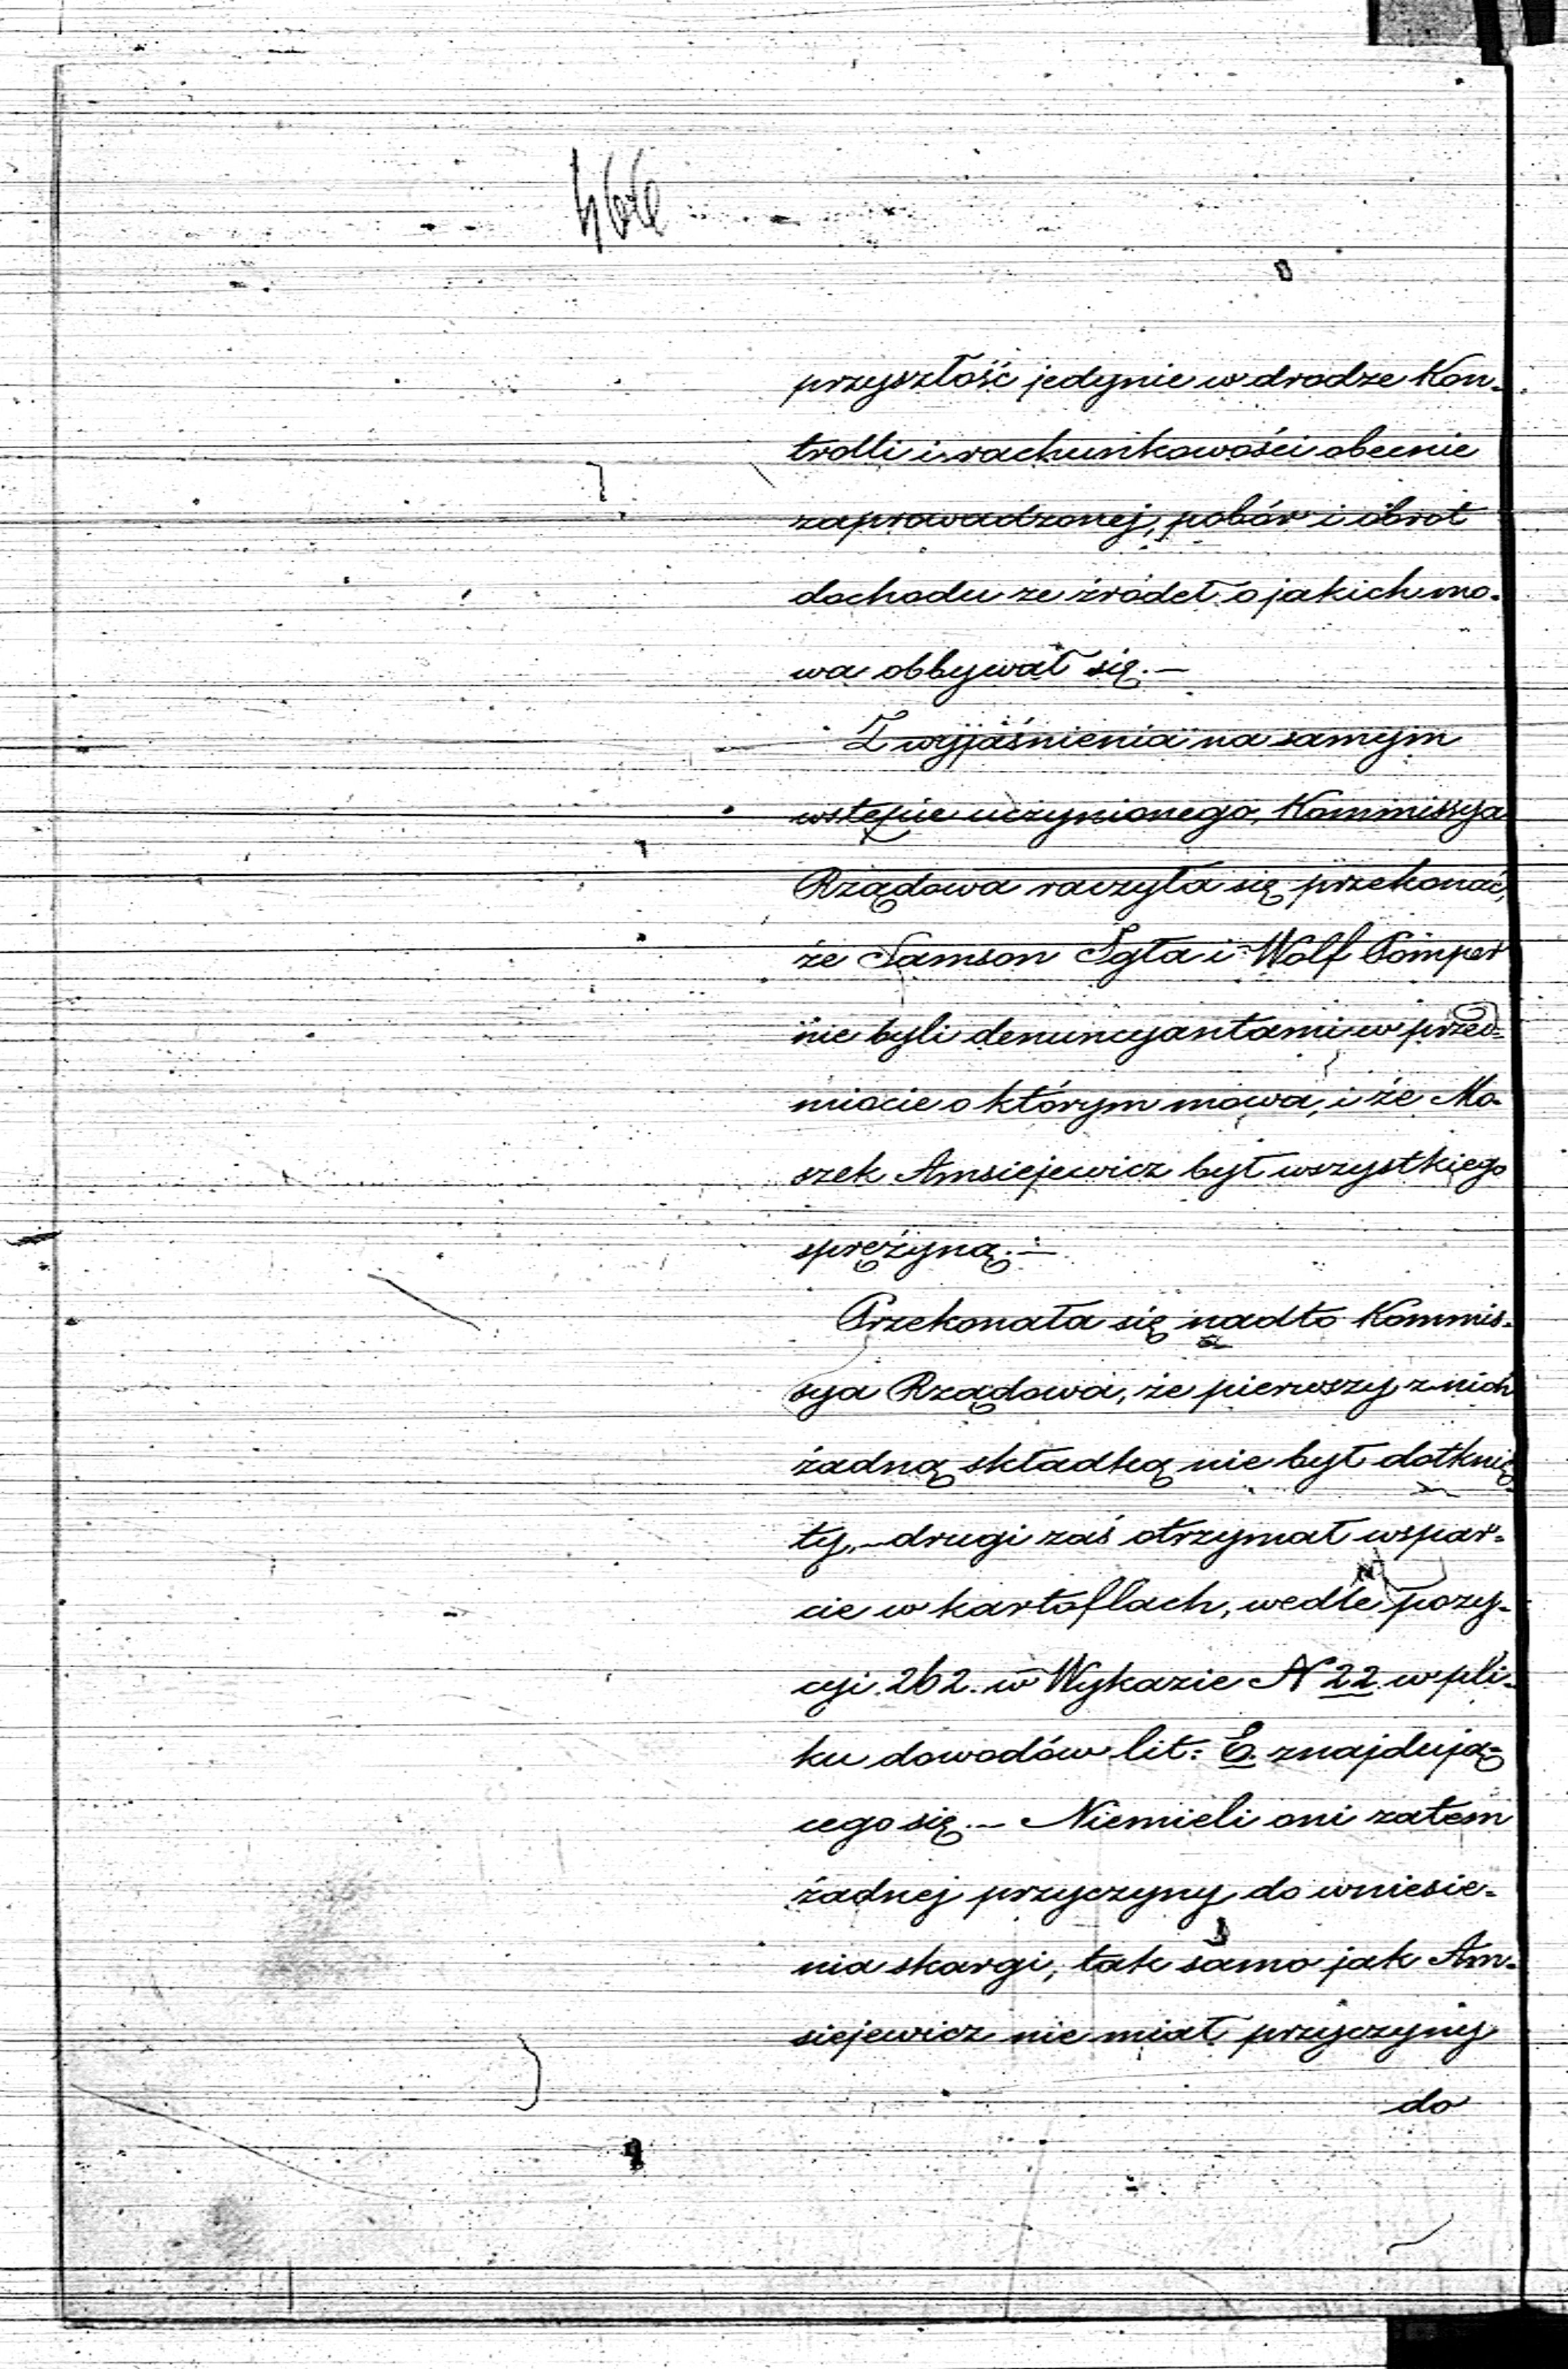 466
przyszłość jedynie w drodze Kon-
trolli i rachunkowości obecnie
zaprowadzonej, pobór i obrot
dochodu ze źródeł o jakich mo-
wa obbywał się.—
Z wyjaśnienia na samym
wstępie uczynionego, Kommissya
Rządowa raczyła się przekonać,
że Samson Igła i Wolf Pomper
nie byli denuncyantami w przed-
miocie o którym mowa, i że Mo-
szek Amsiejewicz był wszystkiego
sprężyną.—
Przekonała się nadto Kommis-
sya Rządowa, że pierwszy z nich
żadną składką nie był dotknię-
ty,— drugi zaś otrzymał wspar-
cie w kartoflach, wedle pozy-
cyi 262. w Wykazie N 22 w pli-
ku dowodów lit: E. znajdują-
cego się.— Niemieli oni zatem
żadnej przyczyny do wniesie-
nia skargi, tak samo jak Am-
siejewicz nie miał przyczyny
do